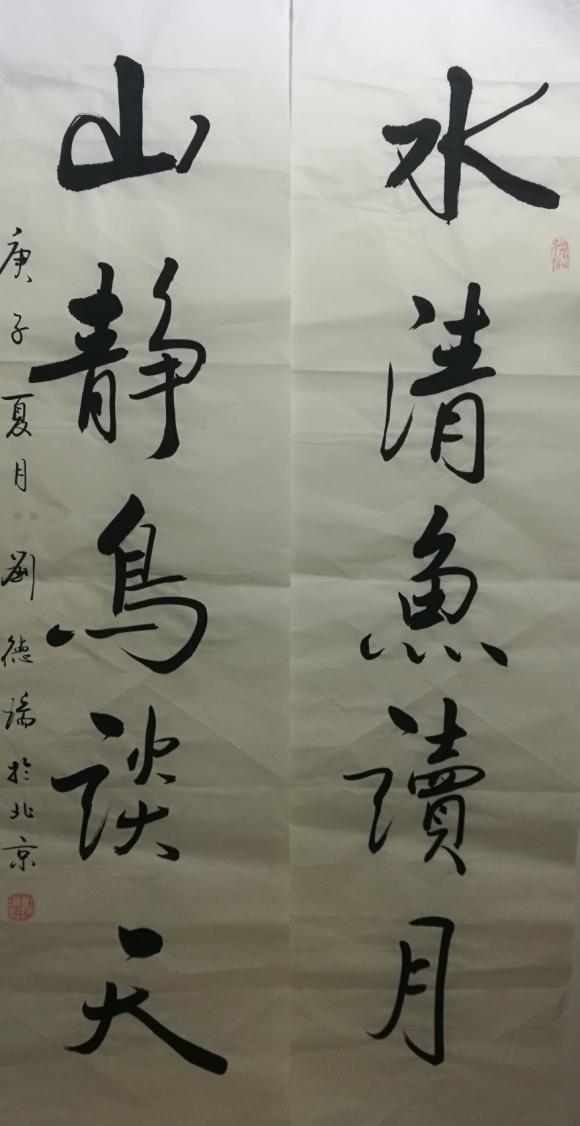 水清魚讀月
山靜鳥談天
庚子夏月劉德瑞於北京